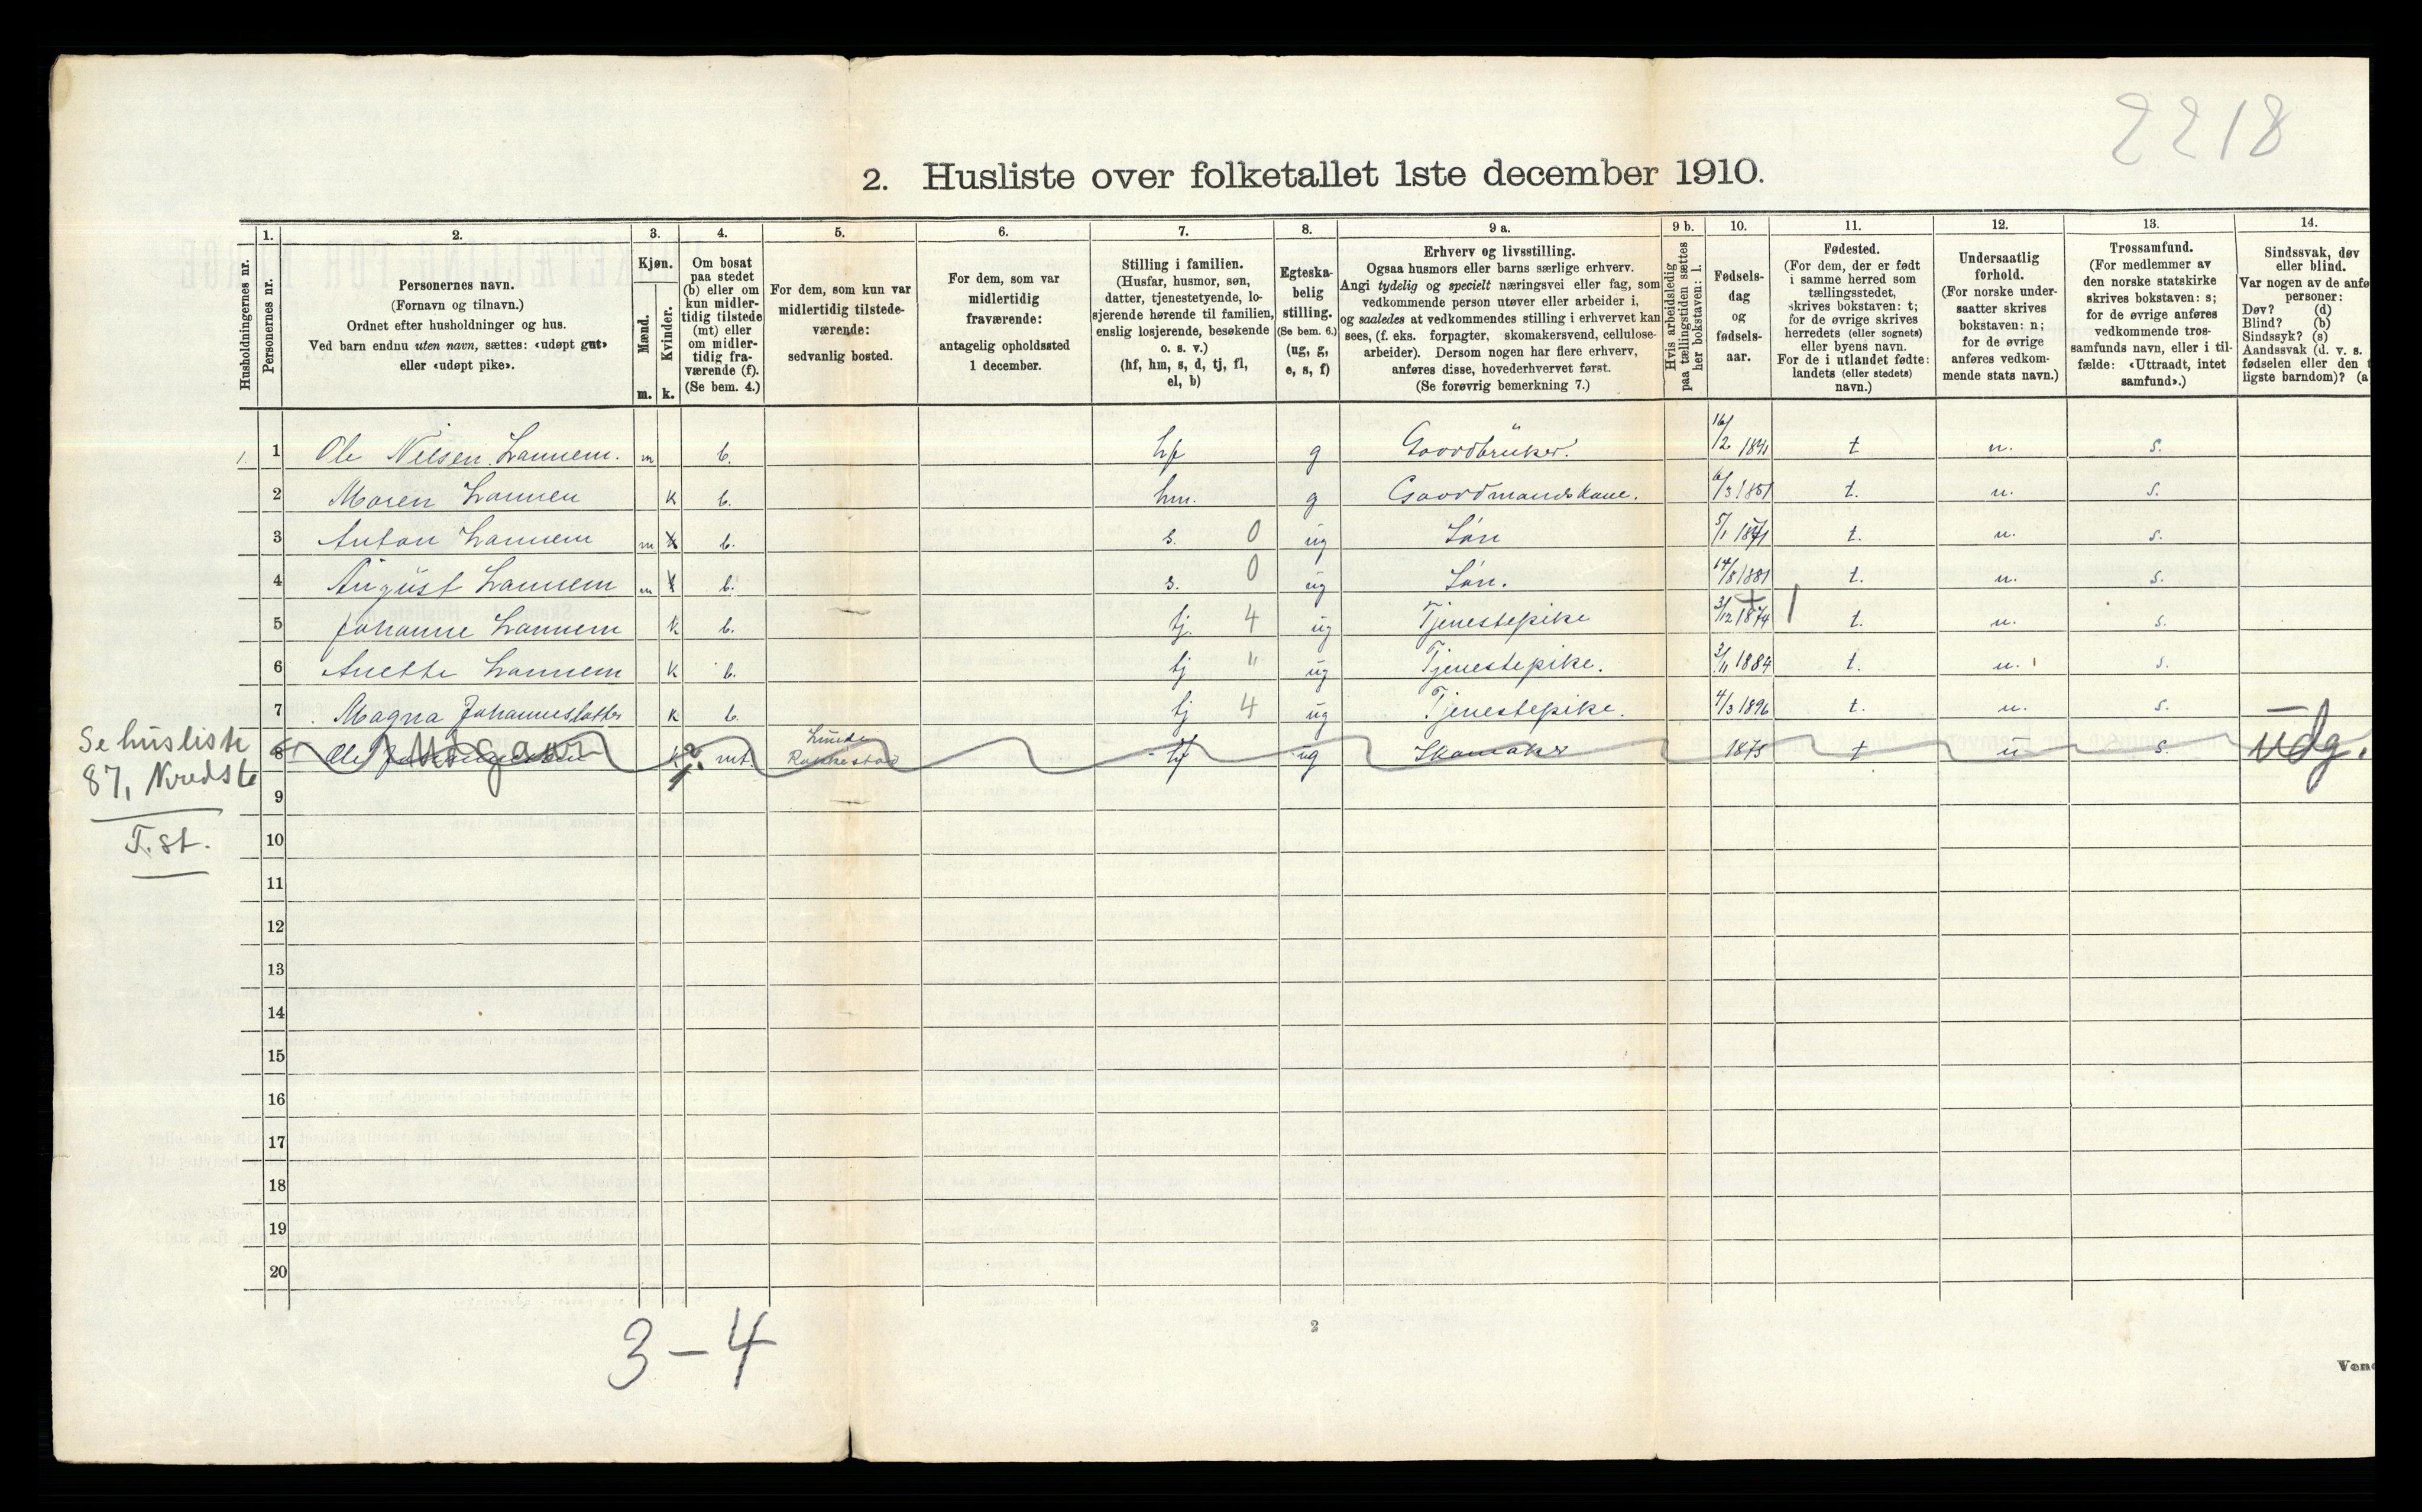 2218
2. Husliste over folketallet 1ste december 1910.
Husholdningernes nr.
1.
Personernes nr.
2.
Personernes navn.
(Fornavn og tilnavn.)
Ordnet efter husholdninger og hus.
Ved barn endnu uten navn, sættes: «udøpt gut»
eller «udøpt pike».
3.
Kjøn.
Mænd.
Kvinder.
m. k.
4.
Om bosat
paa stedet
(b) eller om
kun midler-
tidig tilstede
(mt) eller
om midler-
tidig fra-
værende (f).
(Se bem. 4.)
5.
For dem, som kun var
midlertidig tilstede-
værende:
sedvanlig bosted.
6.
For dem, som var
midlertidig
fraværende:
antagelig opholdssted
1 december.
7.
Stilling i familien.
(Husfar, husmor, søn,
datter, tjenestetyende, lo-
sjerende hørende til familien,
enslig losjerende, besøkende
o. s. v.)
(hf, hm, s, d, tj, fl,
el, b)
8.
Egteska-
belig
stilling.
(Se bem. 6.)
(ug, g,
e, s, f)
9 a.
Erhverv og livsstilling.
Ogsaa husmors eller barns særlige erhverv.
Angi tydelig og specielt næringsvei eller fag, som
vedkommende person utøver eller arbeider i,
og saaledes at vedkommendes stilling i erhvervet kan
sees, (f. eks. forpagter, skomakersvend, cellulose-
arbeider). Dersom nogen har flere erhverv,
anføres disse, hovederhvervet først.
(Se forøvrig bemerkning 7.)
9 b.
Hvis arbeidsledig
paa tællingstiden sættes
her bokstaven: l.
10.
Fødsels-
dag
og
fødsels-
aar.
11.
Fødested.
(For dem, der er født
i samme herred som
tællingsstedet,
skrives bokstaven: t;
for de øvrige skrives
herredets (eller sognets)
eller byens navn.
For de i utlandet fødte:
landets (eller stedets)
navn.)
12.
Undersaatlig
forhold.
(For norske under-
saatter skrives
bokstaven: n;
for de øvrige
anføres vedkom-
mende stats navn.)
13.
Trossamfund.
(For medlemmer av
den norske statskirke
skrives bokstaven: s;
for de øvrige anføres
vedkommende tros-
samfunds navn, eller i til-
fælde: «Uttraadt, intet
samfund».)
14.
Sindssvak, døv
eller blind.
Var nogen av de anfø
personer:
Døv? (d)
Blind? (b)
Sindssyk? (s)
Aandssvak (d. v. s.
fødselen eller den t
ligste barndom)? (a
1. 1 Ole Nilsen Lannem. m b. hf g Gaardbrüker. 16/2 1841 t n. s.
2 Maren Lannem k b. hm. g Gaardmandskone. 6/3 1851 t. n. s.
3 Anton Lannem m k b. s. 0 ug Søn 5/1 1871 t. n. s.
4 August Lannem m k b. s. 0 ug Søn. 14/8 1881 t. n. s.
5 Johanne Lannem k b. tj. 4 ug Tjenestepike 3/12 1874 t. n. s.
6 Anette Lannem k b. tj " ug Tjenestepike. 3/11 1884 t. n. s.
7 Magna Johannesdatter k b. tj 4 ug Tjenestepike. 4/3 1896 t. n. s.
8 Ole Utgaar k mt. Rakkestad ug Skomaker 1875 t n s. udg.
Se husliste
87, Kredst
T. st.
9
10
11
12
13
14
15
16
17
18
19
20
3-4
2
Vend